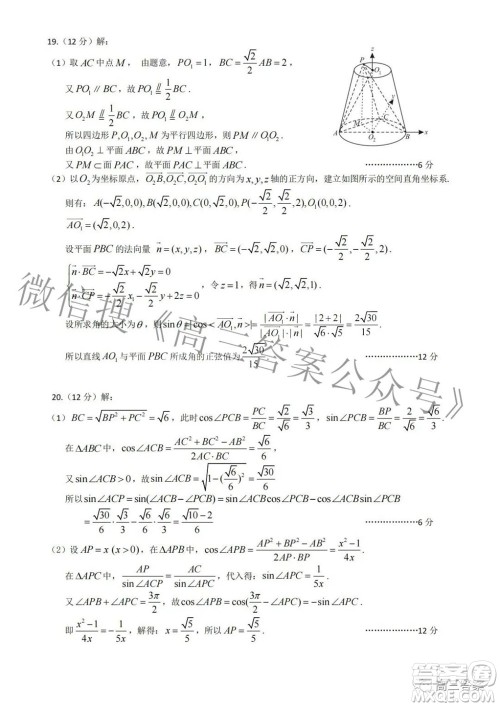 19.（12 分）解：
（1）取 AC 中点 M， 由题意，PO₁=1，BC=√2/2 AB=2，
又 PO₁∥BC，故 PO₁ ∥= 1/2 BC.
又 O₂M ∥= 1/2 BC，故 PO₁ ∥= O₂M，
所以四边形 P,O₁,O₂,M 为平行四边形，则 PM∥O₁O₂.
由 O₁O₂⊥平面 ABC，故 PM⊥平面 ABC，
又 PM⊂面 PAC，故平面 PAC⊥平面 ABC. ……………6 分
（2）以 O₂ 为坐标原点，O₂B,O₂C,O₂O₁ 的方向为 x,y,z 轴的正方向，建立如图所示的空间直角坐标系.
则有：A(-√2,0,0),B(√2,0,0),C(0,√2,0),P(-√2/2,√2/2,2),O₁(0,0,2).
AO₁=(√2,0,2).
设平面 PBC 的法向量 n=(x,y,z)，BC=(-√2,√2,0)，CP=(-√2/2,-√2/2,2)，
{n·BC=-√2x+√2y=0
n·CP=-√2/2 x-√2/2 y+2z=0 ，令 z=1，得 n=(√2,√2,1).
设所求角的大小为 θ，则 sinθ=|cos<AO₁,n>|=|AO₁·n|/|AO₁|·|n|=|2+2|/√6·√5=2√30/15.
所以直线 AO₁ 与平面 PBC 所成角的正弦值为 2√30/15. ……………12 分
20.（12 分）解：
（1）BC=√(BP²+PC²)=√6，此时 cos∠PCB=PC/BC=√3/√6=√3/3，sin∠PCB=BP/BC=2/√6=√6/3.
在 ΔABC 中，cos∠ACB=(AC²+BC²-AB²)/(2AC·BC)=√6/6，
又 sin∠ACB>0，故 sin∠ACB=√(1-(√6/6)²)=√30/6
所以 sin∠ACP=sin(∠ACB-∠PCB)=sin∠ACBcos∠PCB-cos∠ACBsin∠PCB
=√30/6·√3/3-√6/6·√6/3=(√10-2)/6 ……………6 分
（2）设 AP=x (x>0)，在 ΔAPB 中，cos∠APB=(AP²+BP²-AB²)/(2AP·BP)=(x²-1)/4x.
在 ΔAPC 中，AP/sin∠ACP=AC/sin∠APC，代入得：sin∠APC=1/5x.
又 ∠APB+∠APC=3π/2，故 cos∠APB=cos(3π/2-∠APC)=-sin∠APC，
即 (x²-1)/4x=-1/5x，解得：x=√5/5，所以 AP=√5/5. ……………12 分
P
O₁
z
M
C
y
A
O₂
B
x
微信搜《高三答案公众号》
高三答案